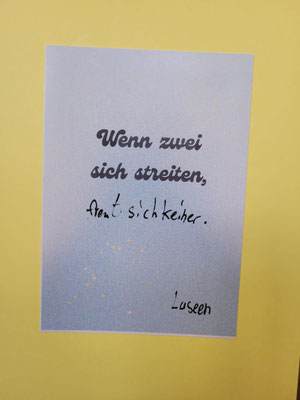 Wenn zwei
sich streiten,
freut sich keiner.
Luseen